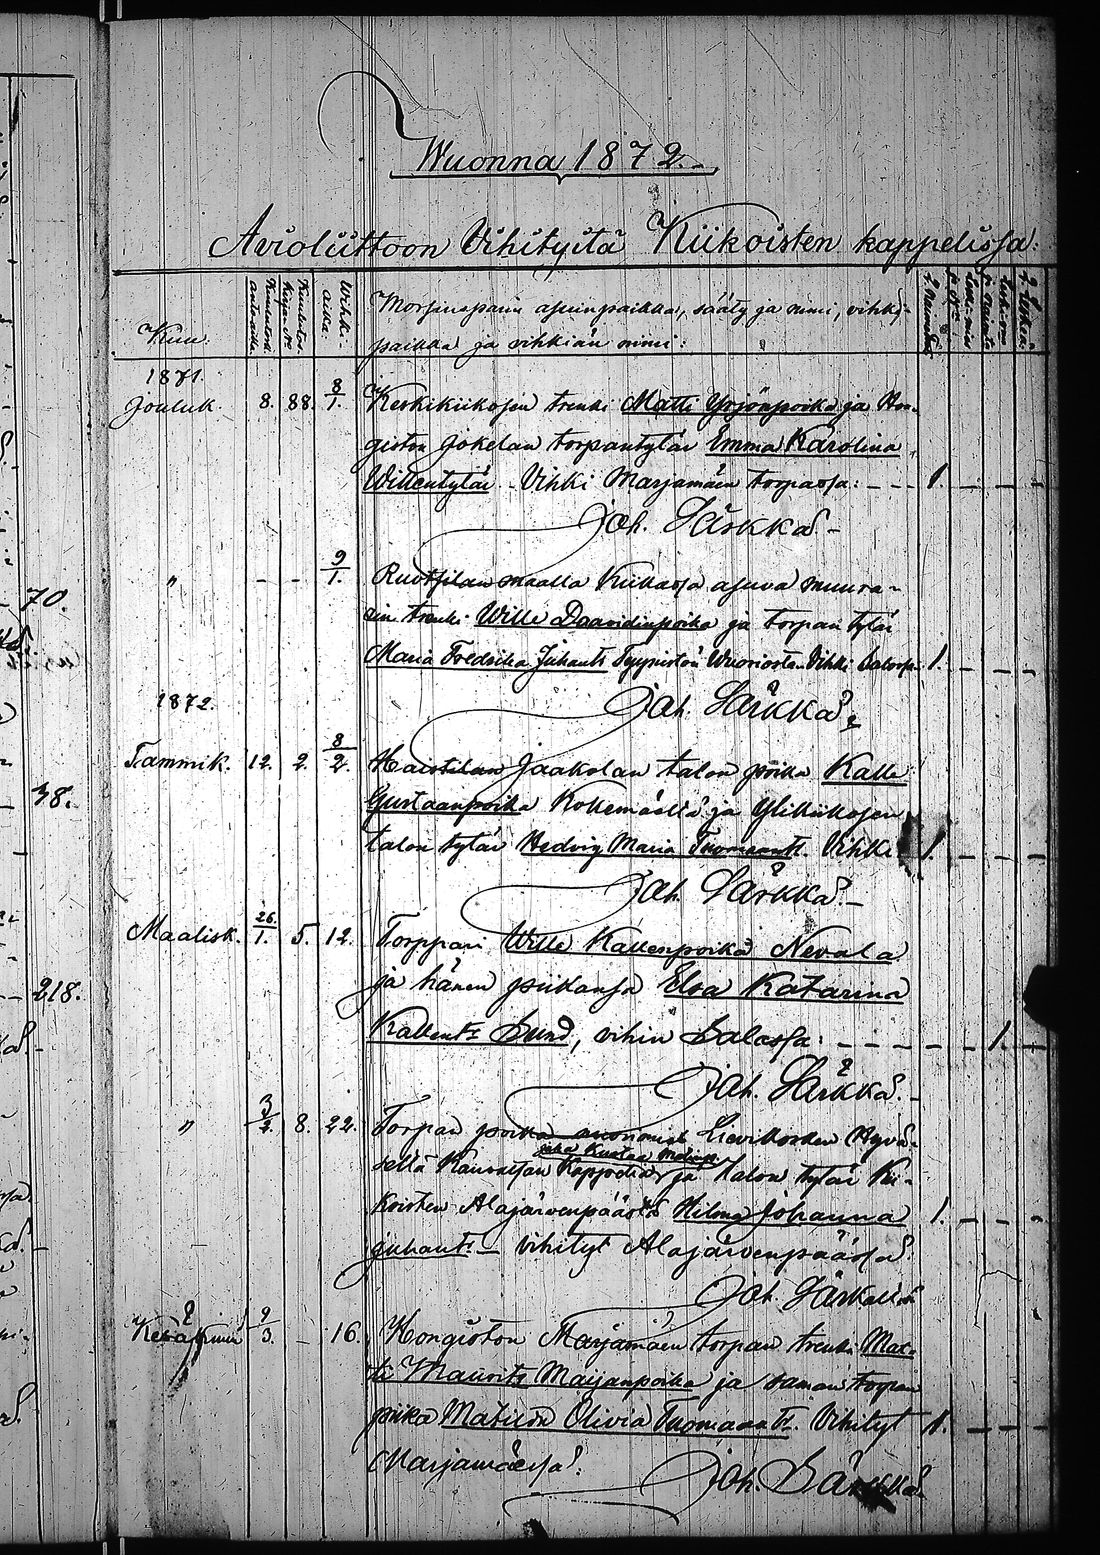 Wuonna 1872.
Avioliittoon Vihityitä Kiikoisten kappelissa:
Kuu.
Kuulutuk. antoaika.
Kuulutus-kirjan No
Vihki-aika:
Morsiusparin asuinpaikka, sääty ja nimi, vihki-
paikka ja vihkiän nimi:
1871.
Jouluk. 8. 88. 8/1. Keskikiikosen trenki Matti Yrjönpoika ja Hon-
giston Jokelan torpantytär Emma Karolina
Willentytär - Vihki Marjamäen torpassa: - - 1. - - -
Joh. Särkkä.-
" - - 9/1. Ruotsilan maalla Kiikassa asuva muura-
rin trenki Wille Daavidinpoika ja torpan tytär
Maria Fredrika Juhant. Wuoriosta. Vihki 1. - - -
Joh. Särkkä.
1872.
Tammik. 12. 2. 8/2. Haistilan Jaakolan talon poika Kalle
Gustaanpoika Kokemäellä ja Ylikiikosen
talon tytär Hedvig Maria Tuomaant. Vihki 1. - - -
Joh. Särkkä.-
Maalisk. 26./1. 5. 12. Torppari Wille Kallenpoika Nevala
ja hänen piikansa Eva Katarina
Kallent. Lund, vihin Salossa: - - - - - - 1. -
Joh. Särkkä.-
" 3/2. 8. 22. Torpan poika Hyvä-
sellä Kauvatsan Kappelia ja talon tytär Kii-
koisten Alajärvenpäästä Hilma Johanna 1. - - -
Juhant. - Vihityt Alajärvenpäässä.
Joh. Särkkältä
Kesäkuu 9/3. - 16. Hongiston Marjamäen torpan trenki Mat-
ti Maurits Maijanpoika ja saman torpan
piika Matilda Olivia Tuomaant. Vihityt 1. - - -
Marjamäessä.
Joh. Särkkä.
70.
38.
218.